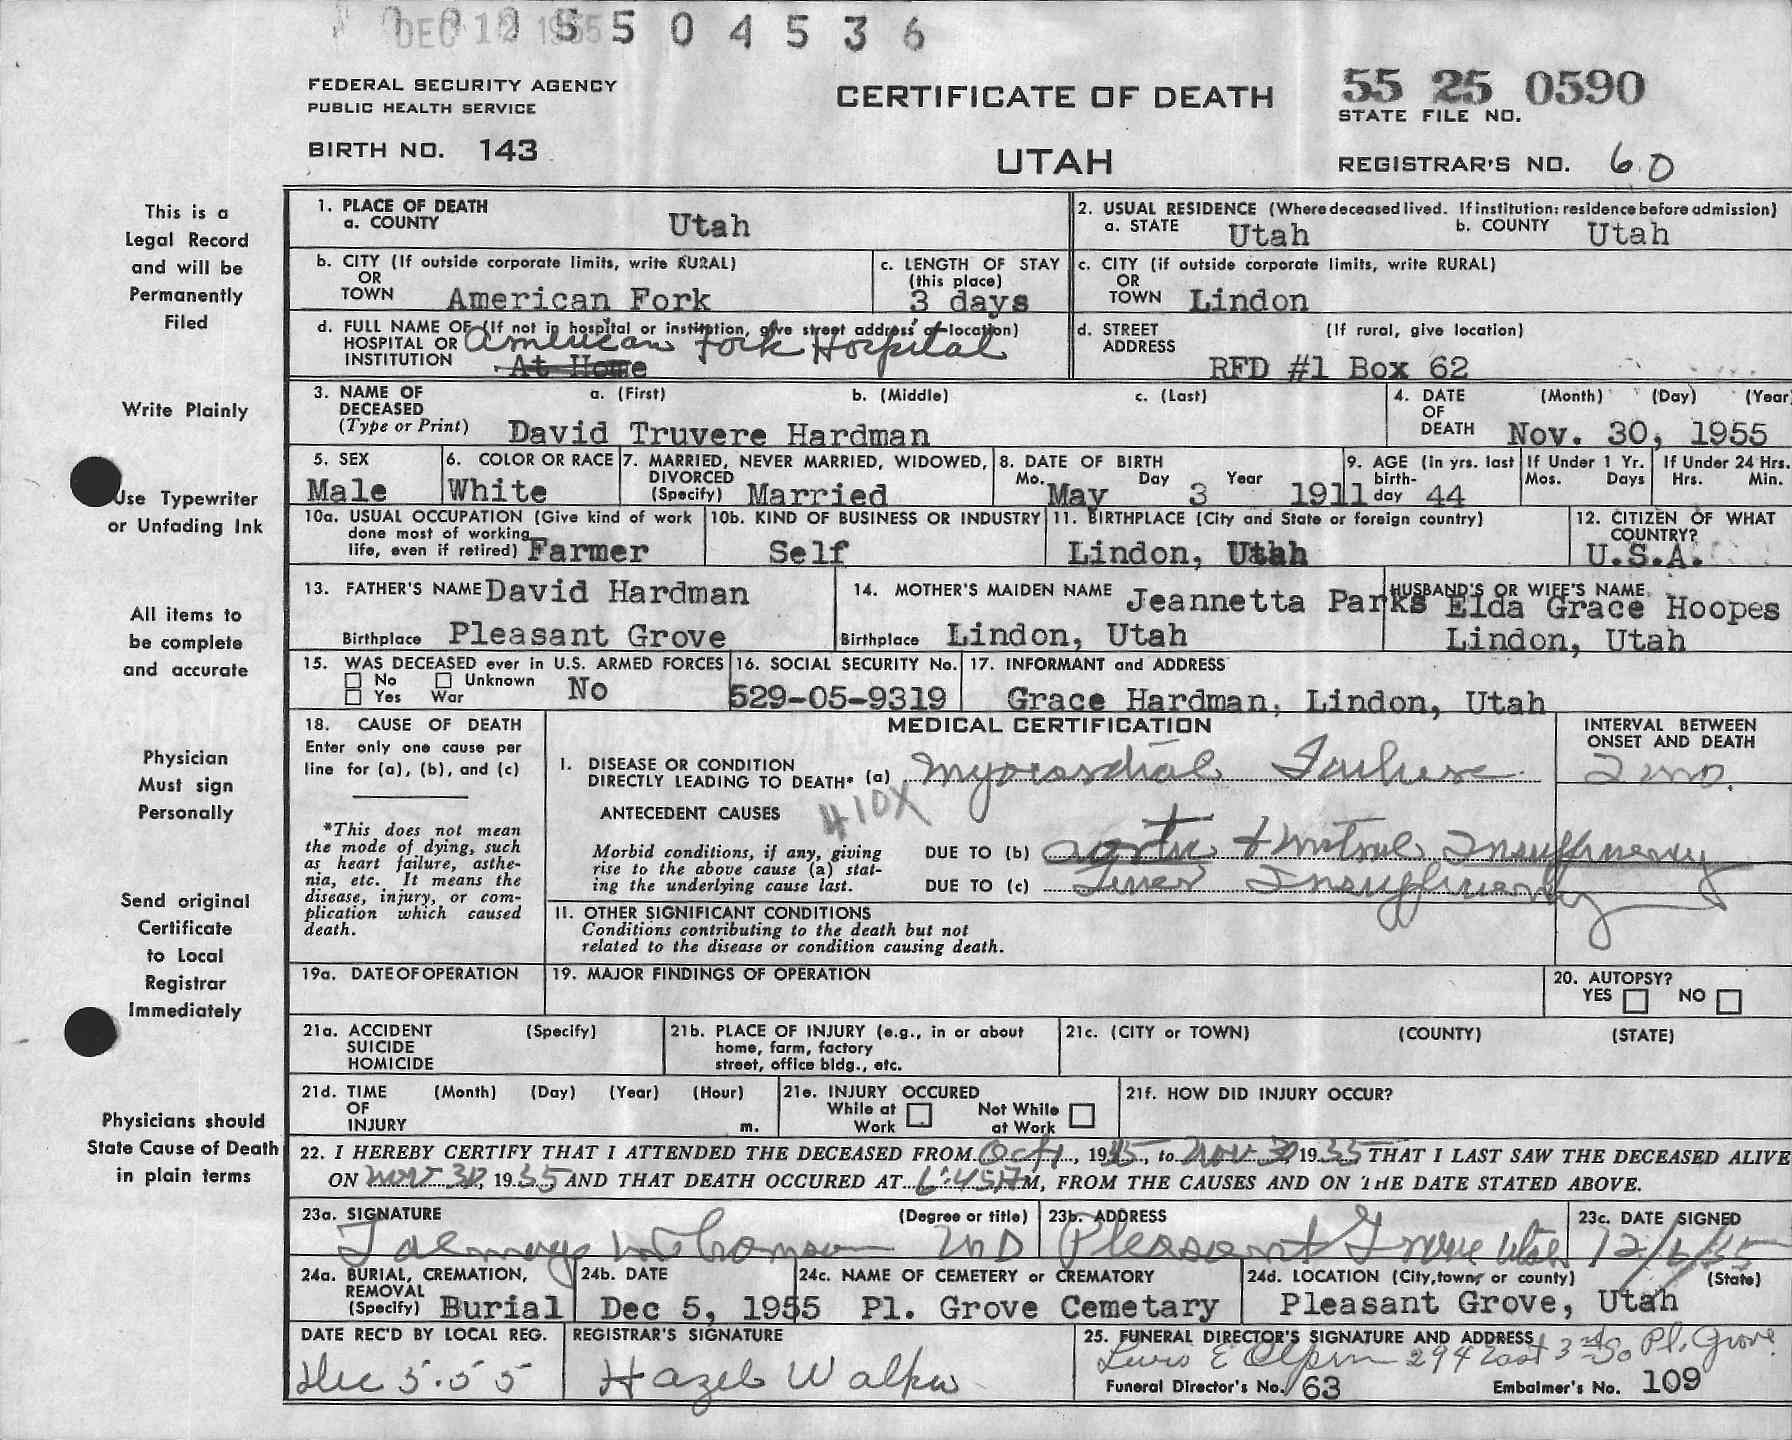 DEC 12 1955 5 5 0 4 5 3 6
FEDERAL SECURITY AGENCY
PUBLIC HEALTH SERVICE
BIRTH NO. 143
CERTIFICATE OF DEATH
UTAH
55 25 0590
STATE FILE NO.
REGISTRAR'S NO. 60
This is a
Legal Record
and will be
Permanently
Filed
Write Plainly
Use Typewriter
or Unfading Ink
All items to
be complete
and accurate
Physician
Must sign
Personally
Send original
Certificate
to Local
Registrar
Immediately
Physicians should
State Cause of Death
in plain terms
1. PLACE OF DEATH
a. COUNTY Utah
2. USUAL RESIDENCE (Where deceased lived. If institution: residence before admission)
a. STATE Utah b. COUNTY Utah
b. CITY (If outside corporate limits, write RURAL)
OR
TOWN American Fork
c. LENGTH OF STAY
(this place)
3 days
c. CITY (if outside corporate limits, write RURAL)
OR
TOWN Lindon
d. FULL NAME OF (If not in hospital or institution, give street address or location)
HOSPITAL OR American Fork Hospital
INSTITUTION At Home
d. STREET (If rural, give location)
ADDRESS
RFD #1 Box 62
3. NAME OF a. (First) b. (Middle) c. (Last)
DECEASED
(Type or Print) David Truvere Hardman
4. DATE (Month) (Day) (Year
OF
DEATH Nov. 30, 1955
5. SEX
Male
6. COLOR OR RACE
White
7. MARRIED, NEVER MARRIED, WIDOWED,
DIVORCED
(Specify) Married
8. DATE OF BIRTH
Mo. Day Year
May 3 1911
9. AGE (in yrs. last
birth-
day 44
If Under 1 Yr.
Mos. Days
If Under 24 Hrs.
Hrs. Min.
10a. USUAL OCCUPATION (Give kind of work
done most of working
life, even if retired) Farmer
10b. KIND OF BUSINESS OR INDUSTRY
Self
11. BIRTHPLACE (City and State or foreign country)
Lindon, Utah
12. CITIZEN OF WHAT
COUNTRY?
U.S.A.
13. FATHER'S NAME David Hardman
Birthplace Pleasant Grove
14. MOTHER'S MAIDEN NAME Jeannetta Parks
Birthplace Lindon, Utah
HUSBAND'S OR WIFE'S NAME
Elda Grace Hoopes
Lindon, Utah
15. WAS DECEASED ever in U.S. ARMED FORCES
No Unknown No
Yes War
16. SOCIAL SECURITY No.
529-05-9319
17. INFORMANT and ADDRESS
Grace Hardman, Lindon, Utah
18. CAUSE OF DEATH
Enter only one cause per
line for (a), (b), and (c)
*This does not mean
the mode of dying, such
as heart failure, asthe-
nia, etc. It means the
disease, injury, or com-
plication which caused
death.
MEDICAL CERTIFICATION
INTERVAL BETWEEN
ONSET AND DEATH
I. DISEASE OR CONDITION
DIRECTLY LEADING TO DEATH* (a) Myocardial Failure 2 mo.
ANTECEDENT CAUSES 410X
Morbid conditions, if any, giving
rise to the above cause (a) stat-
ing the underlying cause last.
DUE TO (b) aortic + mitral Insufficiency
DUE TO (c) Liver Insufficiency
II. OTHER SIGNIFICANT CONDITIONS
Conditions contributing to the death but not
related to the disease or condition causing death.
19a. DATE OF OPERATION
19. MAJOR FINDINGS OF OPERATION
20. AUTOPSY?
YES NO
21a. ACCIDENT (Specify)
SUICIDE
HOMICIDE
21b. PLACE OF INJURY (e.g., in or about
home, farm, factory
street, office bldg., etc.
21c. (CITY or TOWN) (COUNTY) (STATE)
21d. TIME (Month) (Day) (Year) (Hour)
OF
INJURY m.
21e. INJURY OCCURED
While at Not While
Work at Work
21f. HOW DID INJURY OCCUR?
22. I HEREBY CERTIFY THAT I ATTENDED THE DECEASED FROM Oct, 19 , to Nov 30 1955 THAT I LAST SAW THE DECEASED ALIVE
ON Nov 30, 1955, AND THAT DEATH OCCURED AT 6:45 A M, FROM THE CAUSES AND ON THE DATE STATED ABOVE.
23a. SIGNATURE (Degree or title)
MD
23b. ADDRESS
Pleasant Grove Utah
23c. DATE SIGNED
24a. BURIAL, CREMATION,
REMOVAL
(Specify) Burial
24b. DATE
Dec 5, 1955
24c. NAME OF CEMETERY or CREMATORY
Pl. Grove Cemetary
24d. LOCATION (City, town, or county) (State)
Pleasant Grove, Utah
DATE REC'D BY LOCAL REG.
Dec 5.55
REGISTRAR'S SIGNATURE
Hazel Walker
25. FUNERAL DIRECTOR'S SIGNATURE AND ADDRESS
Lewis E Olpin 294 East 3rd So Pl. Grove
Funeral Director's No. 63 Embalmer's No. 109